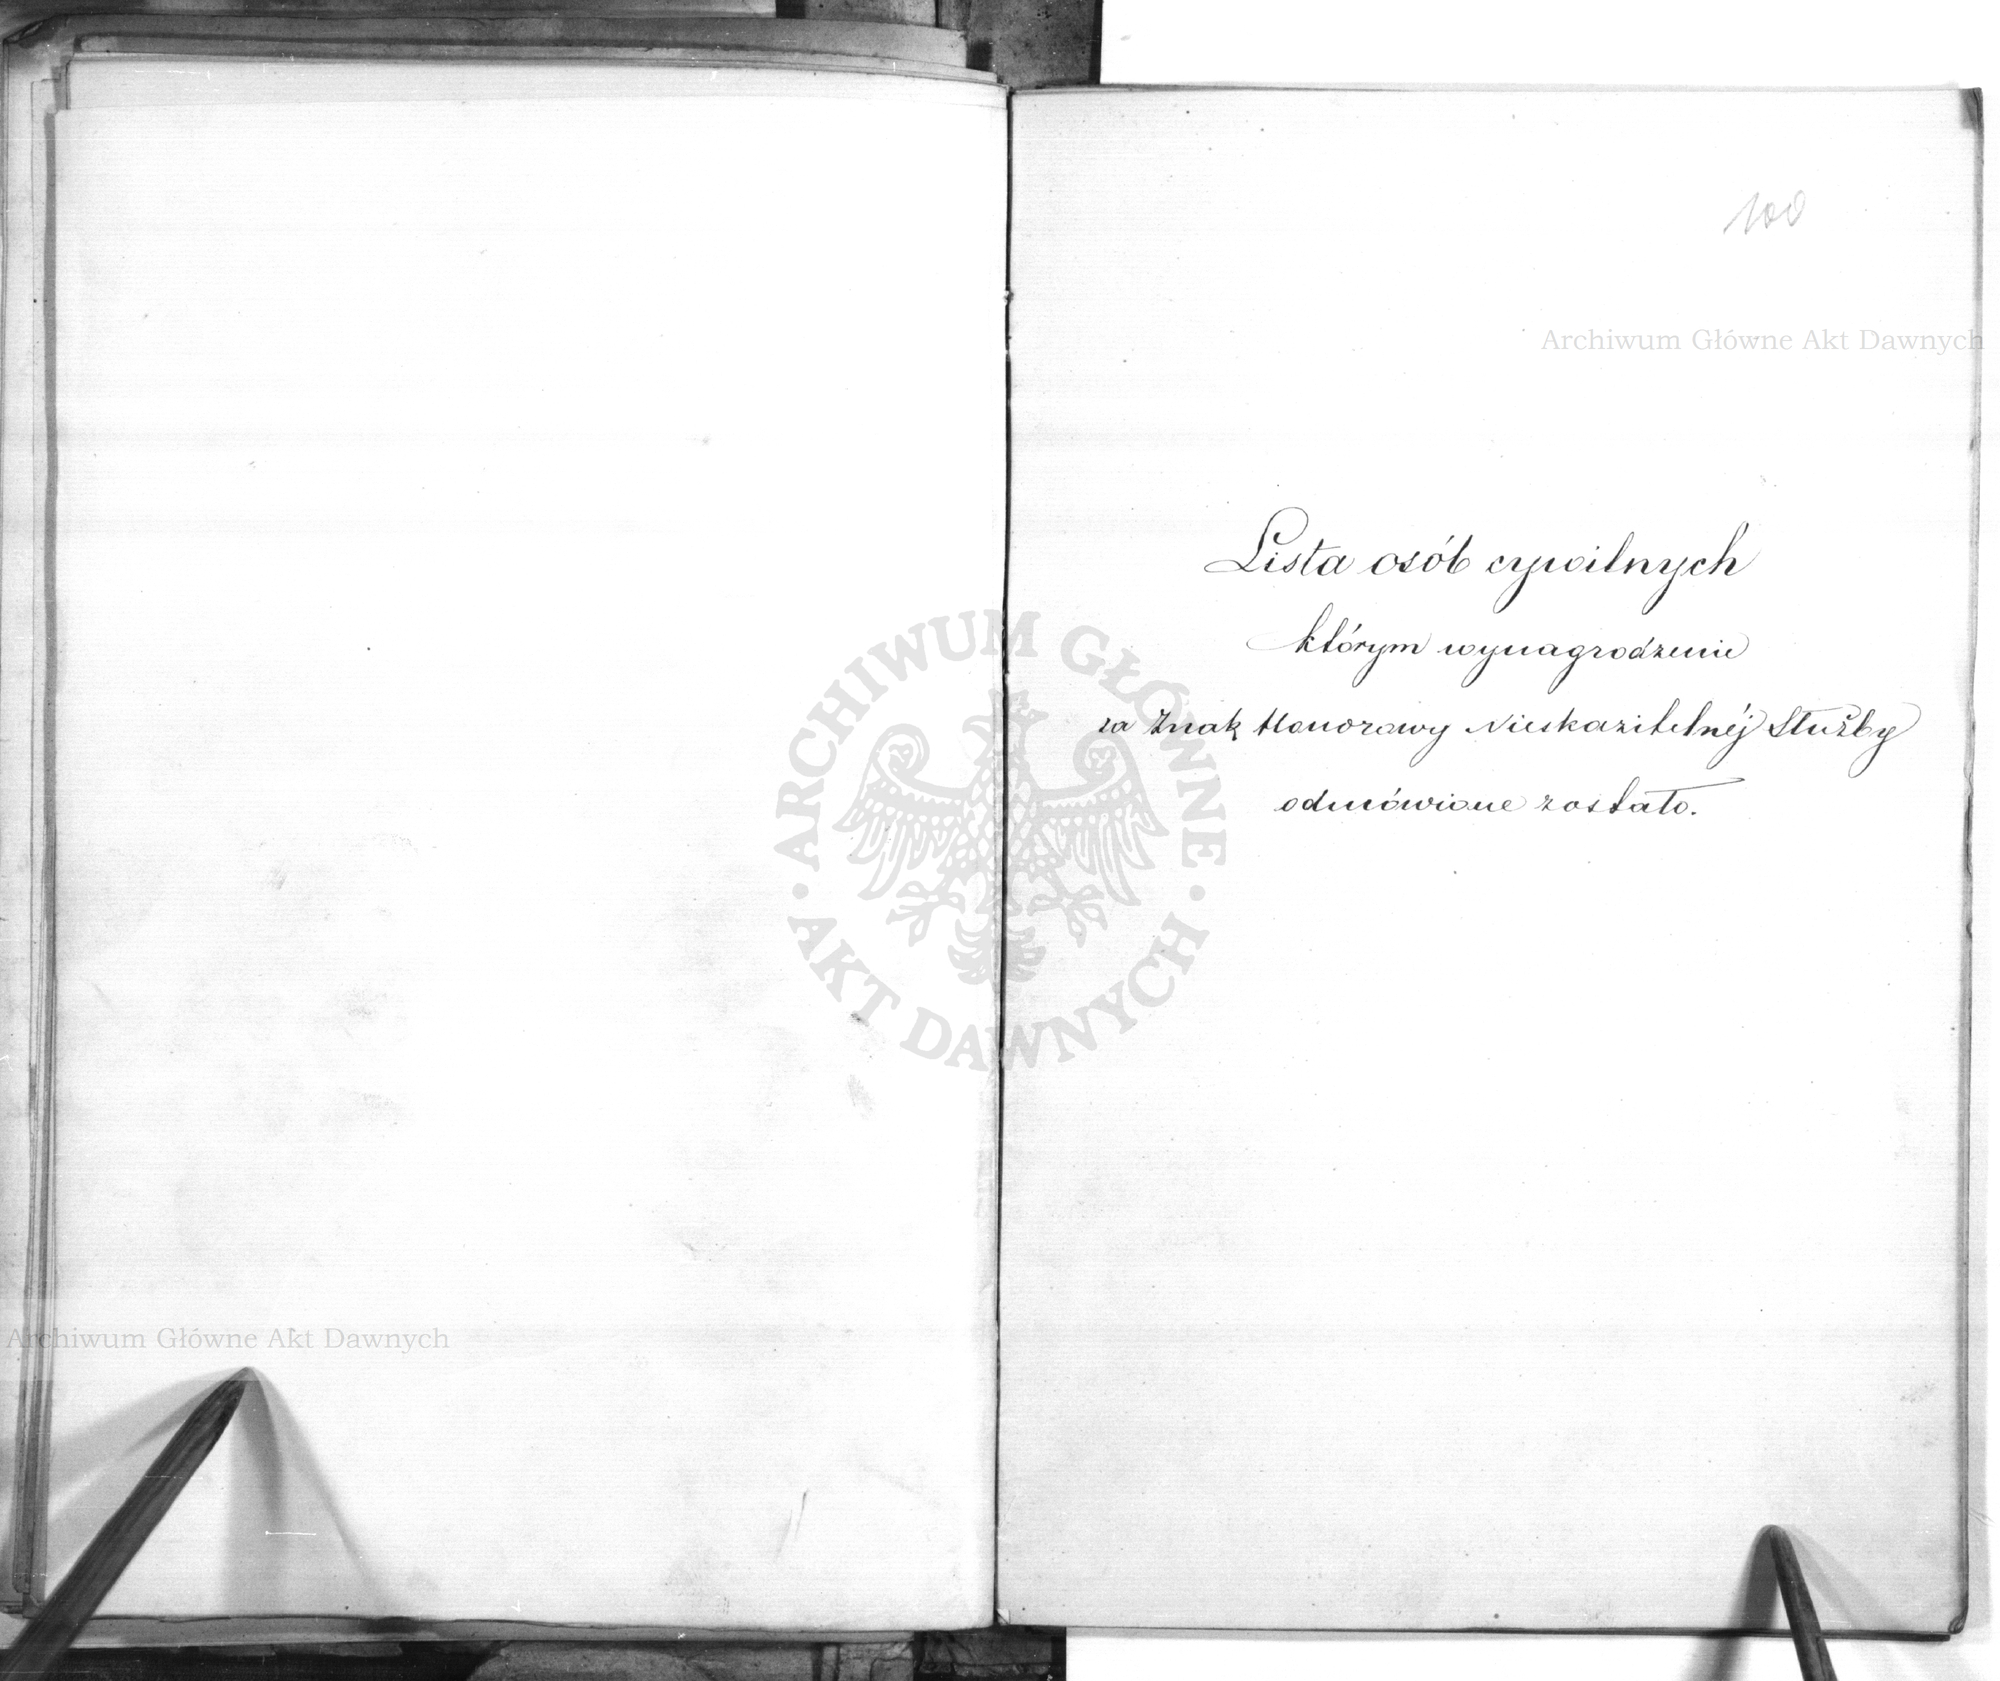 100
Archiwum Główne Akt Dawnych
Lista osób cywilnych
którym wynagrodzenie
za Znak Honorowy Nieskazitelnéj Służby
odmówione zostało.
ARCHIWUM GŁÓWNE · AKT DAWNYCH ·
Archiwum Główne Akt Dawnych